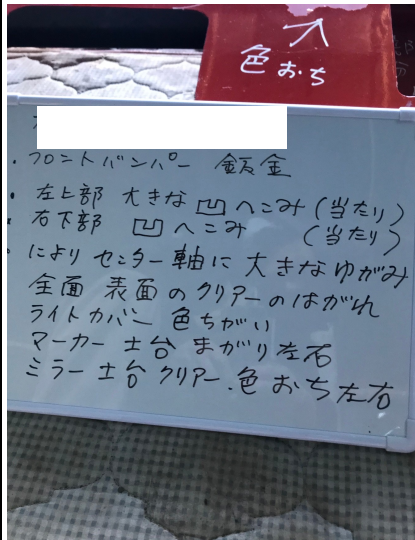 色おち
・フロントバンパー 鈑金
・左上部 大きな凹へこみ(当たり)
・右下部 凹へこみ (当たり)
・によりセンター軸に大きなゆがみ
全面 表面のクリアーのはがれ
ライトカバー 色ちがい
マーカー土台 まがり左右
ミラー土台クリアー.色おち左右